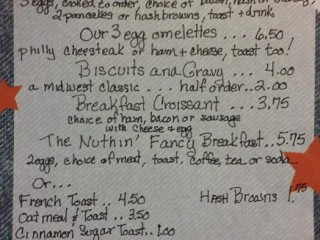 3 eggs, cooked to order, choice of bacon, ham or
2 pancakes or hash browns, toast + drink
Our 3 egg omelettes ... 6.50
philly cheesteak or ham + cheese, toast too!
Biscuits and Gravy ... 4.00
a midwest classic ... half order..2.00
Breakfast Croissant ... 3.75
choice of ham, bacon or sausage
with cheese & egg
The Nuthin' Fancy Breakfast..5.75
2 eggs, choice of meat, toast, coffee, tea or soda
Or...
French Toast .. 4.50
Hash Browns 1.75
Oatmeal & Toast .. 3.50
Cinnamon Sugar Toast..1.00